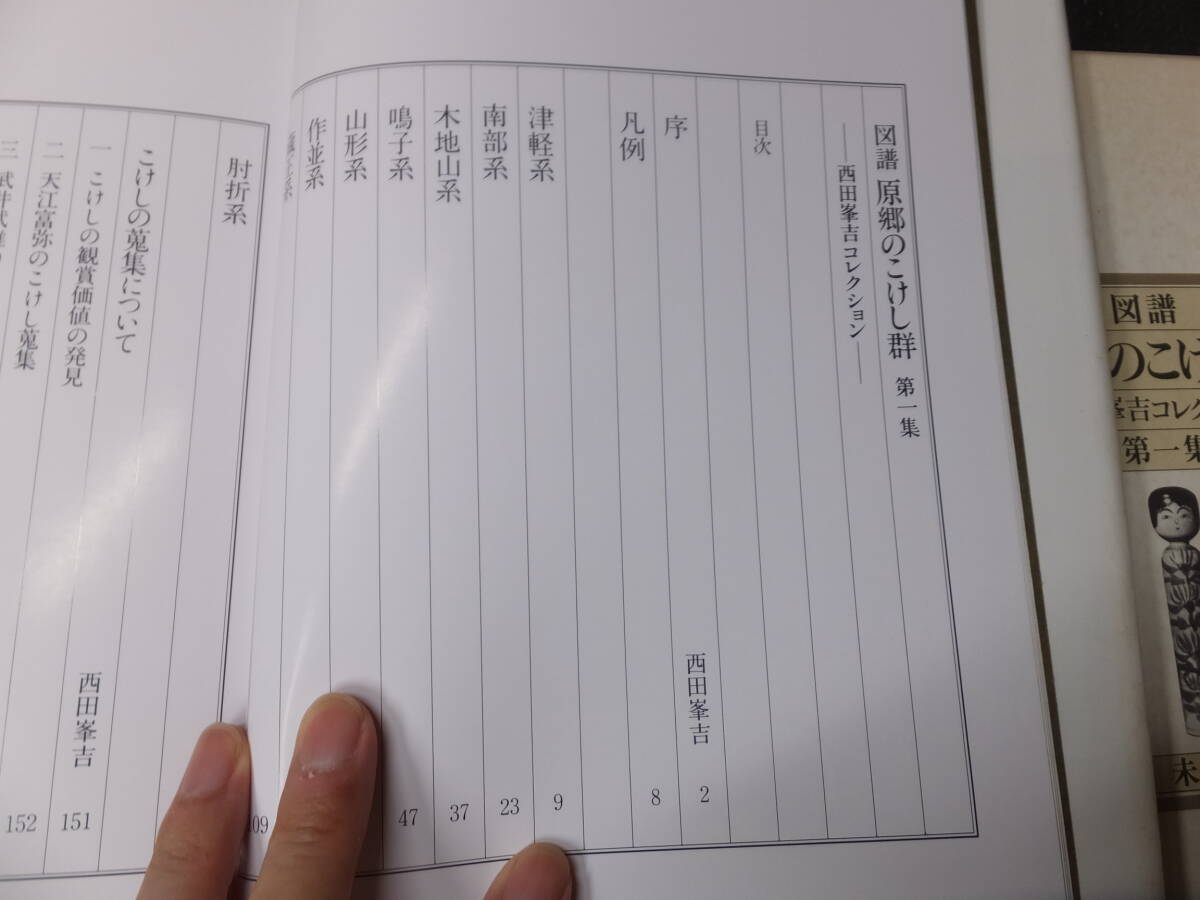 図譜 原郷のこけし群 第一集
―西田峯吉コレクション―
目次
序 西田峯吉 2
凡例 8
津軽系 9
南部系 23
木地山系 37
鳴子系 47
山形系
作並系
肘折系
こけしの蒐集について 西田峯吉 151
一 こけしの観賞価値の発見
二 天江富弥のこけし蒐集 152
三 武井武雄
図譜
のこけ
峯吉コレク
第一集
未